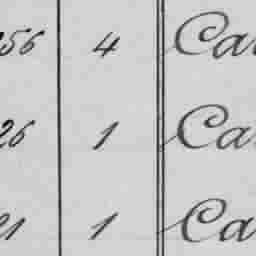 256 4 Ca
26 1 Ca
21 1 Ca